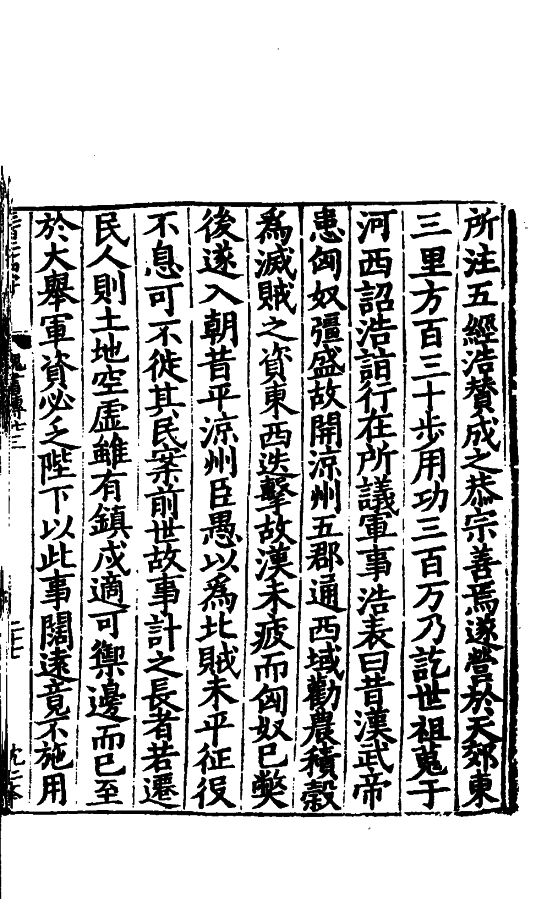 所注五經浩贊成之恭宗善焉遂營於天郊東
三里方百三十步用功三百万乃訖世祖蒐于
河西詔浩詣行在所議軍事浩表曰昔漢武帝
患匈奴彊盛故開涼州五郡通西域勸農積穀
爲滅賊之資東西迭擊故漢未疲而匈奴已獘
後遂入朝昔平涼州臣愚以爲北賊未平征役
不息可不徙其民案前世故事計之長者若遷
民人則土地空虛雖有鎮戍適可禦邊而已至
於大舉軍資必乏陛下以此事闊遠竟不施用